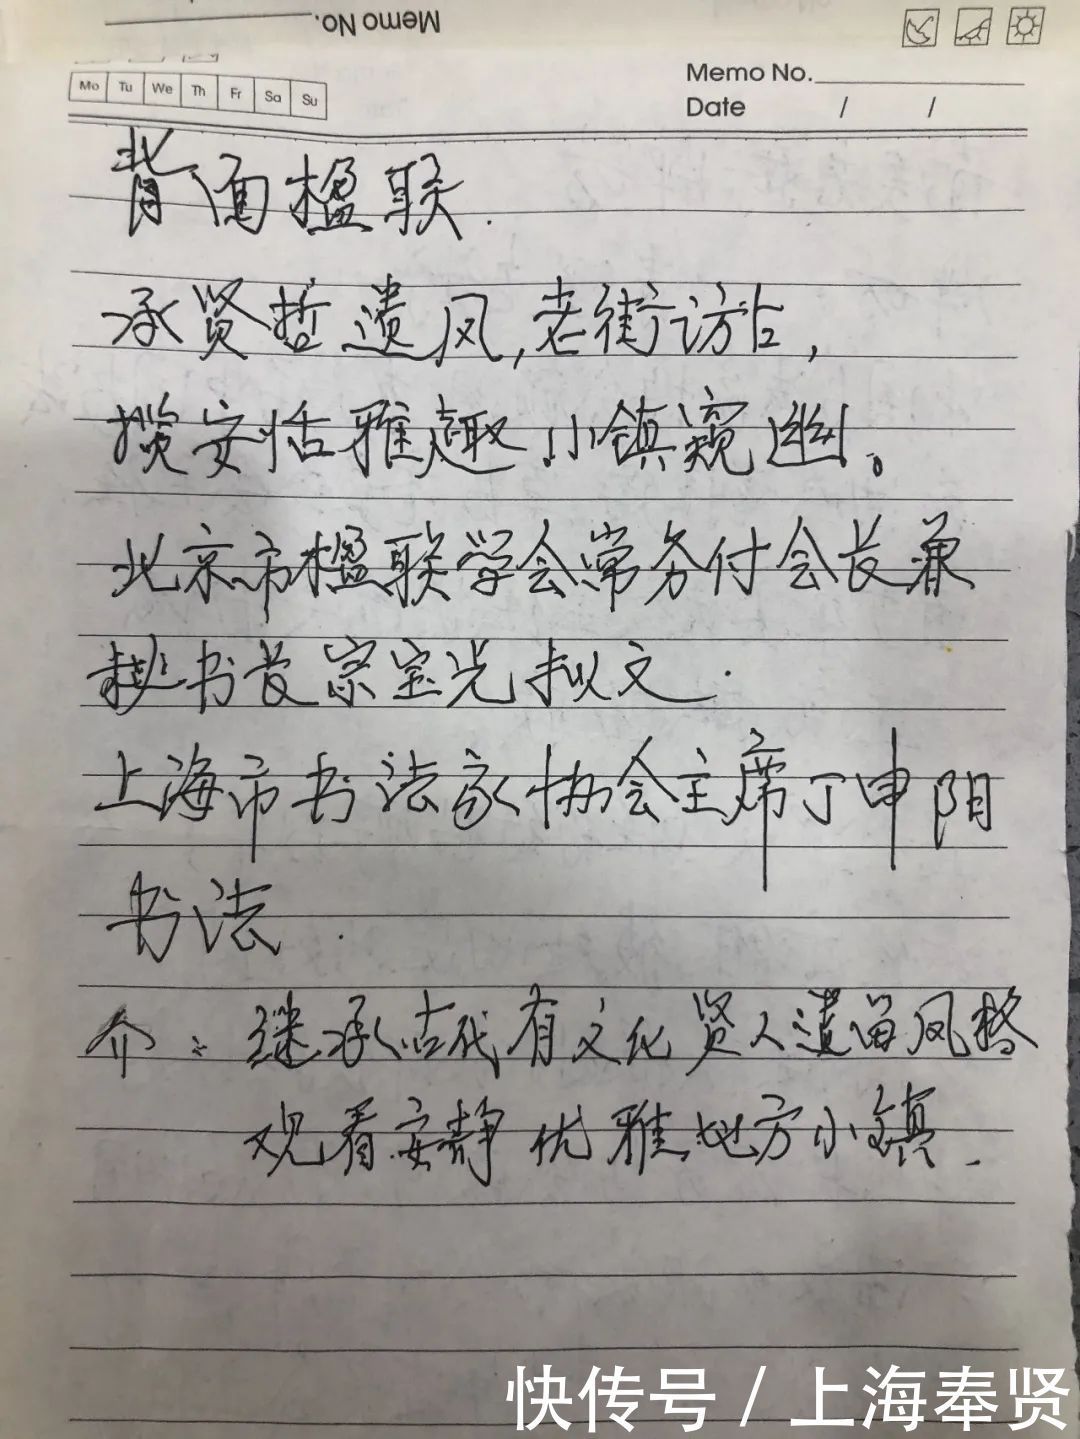 Memo No.
Mo Tu We Th Fr Sa Su
Memo No.
Date / /
背面楹联.
承贤哲遗风,老街访古,
揽安恬雅趣,小镇窥幽。
北京市楹联学会常务付会长兼
秘书长宗宝光拟文.
上海市书法家协会主席丁申阳
书法.
介: 继承古代有文化贤人遗留风格
观看安静优雅地方小镇.
快传号 / 上海奉贤